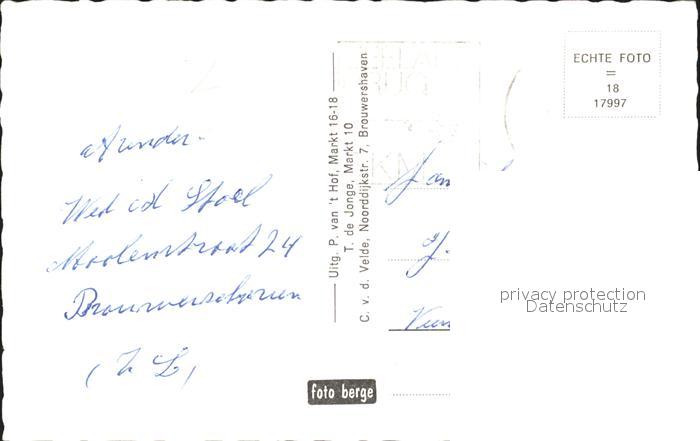 afzender.
Wed v/d Stoel
Moolenstraat 24
Brouwershaven
(Z L)
Uitg. P. van 't Hof, Markt 16-18
T. de Jonge, Markt 10
C. v. d. Velde, Noorddijkstr. 7, Brouwershaven
foto berge
ECHTE FOTO
=
18
17997
privacy protection
Datenschutz